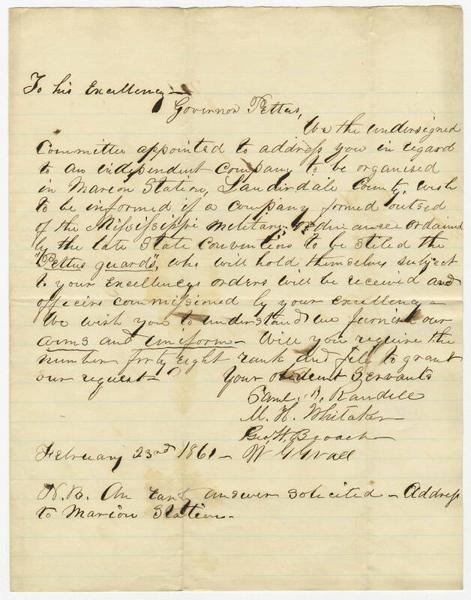 To his Excellency—
Governor Pettus,
We the undersigned
Committee appointed to address you in regard
to an independent company to be organised
in Marion Station, Lauderdale County wish
to be informed if a company formed outside
of the Mississippi military ordinances ordained
by the late State Convention to be stiled the
"Pettus guards", who will hold themselves subject
to your excellencys orders will be received and
officers commissioned by your excellency—
We wish you to understand we furnish our
arms and uniform— Will you require the
number forty eight rank and file to grant
our request—? Your obedient Servants
Saml. A. Randell
M. H. Whitaker
Geo. H. Broach
February 23rd 1861— W G
N.B. An early answer solicited— Address
to Marion Station—